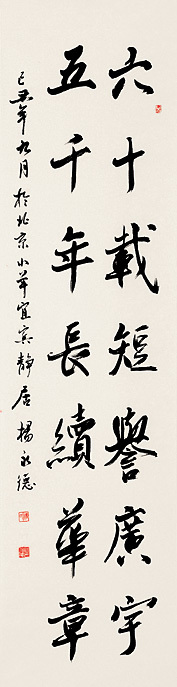 六十載短譽廣宇
五千年長續華章
己丑年九月於北京小苹宜寡靜居楊永德